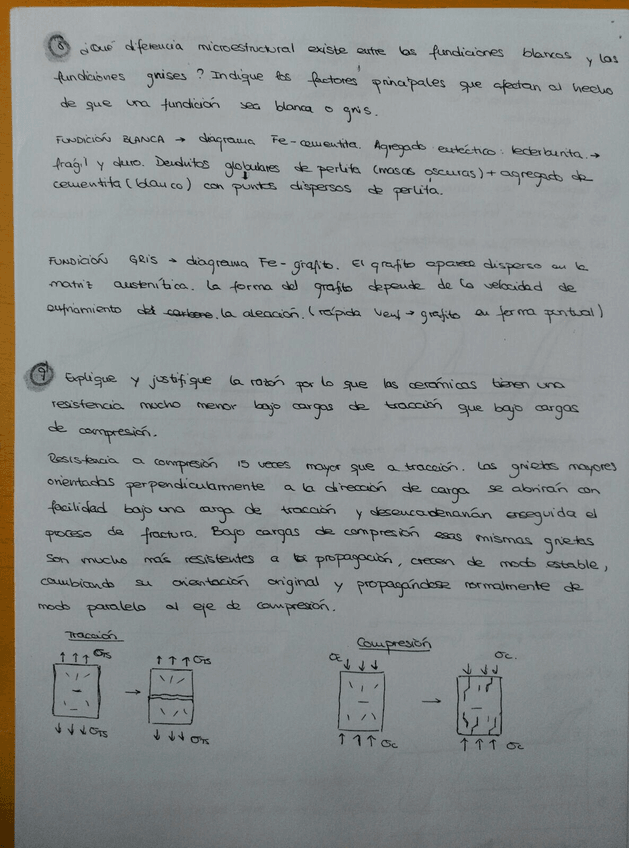 8 ¿Qué diferencia microestructural existe entre las fundiciones blancas y las
fundiciones grises? Indique los factores principales que afectan al hecho
de que una fundición sea blanca o gris.
FUNDICIÓN BLANCA → diagrama Fe-cementita. Agregado eutéctico: lederburita. →
frágil y duro. Dendritas globulares de perlita (masas oscuras) + agregado de
cementita (blanco) con puntos dispersos de perlita.
FUNDICIÓN GRIS → diagrama Fe-grafito. El grafito aparece disperso en la
matriz austenítica. La forma del grafito depende de la velocidad de
enfriamiento de la aleación. (rápida Venf → grafito en forma puntual)
9 Explique y justifique la razón por lo que las cerámicas tienen una
resistencia mucho menor bajo cargas de tracción que bajo cargas
de compresión.
Resistencia a compresión 15 veces mayor que a tracción. Las grietas mayores
orientadas perpendicularmente a la dirección de carga se abrirán con
facilidad bajo una carga de tracción y desencadenarán enseguida el
proceso de fractura. Bajo cargas de compresión esas mismas grietas
son mucho más resistentes a la propagación, crecen de modo estable,
cambiando su orientación original y propagándose normalmente de
modo paralelo al eje de compresión.
Tracción Compresión
↑↑↑ σTS ↑↑↑ σTS σc ↓↓↓ ↓↓↓ σc.
→ →
↓↓↓ σTS ↓↓↓ σTS ↑↑↑ σc ↑↑↑ σc